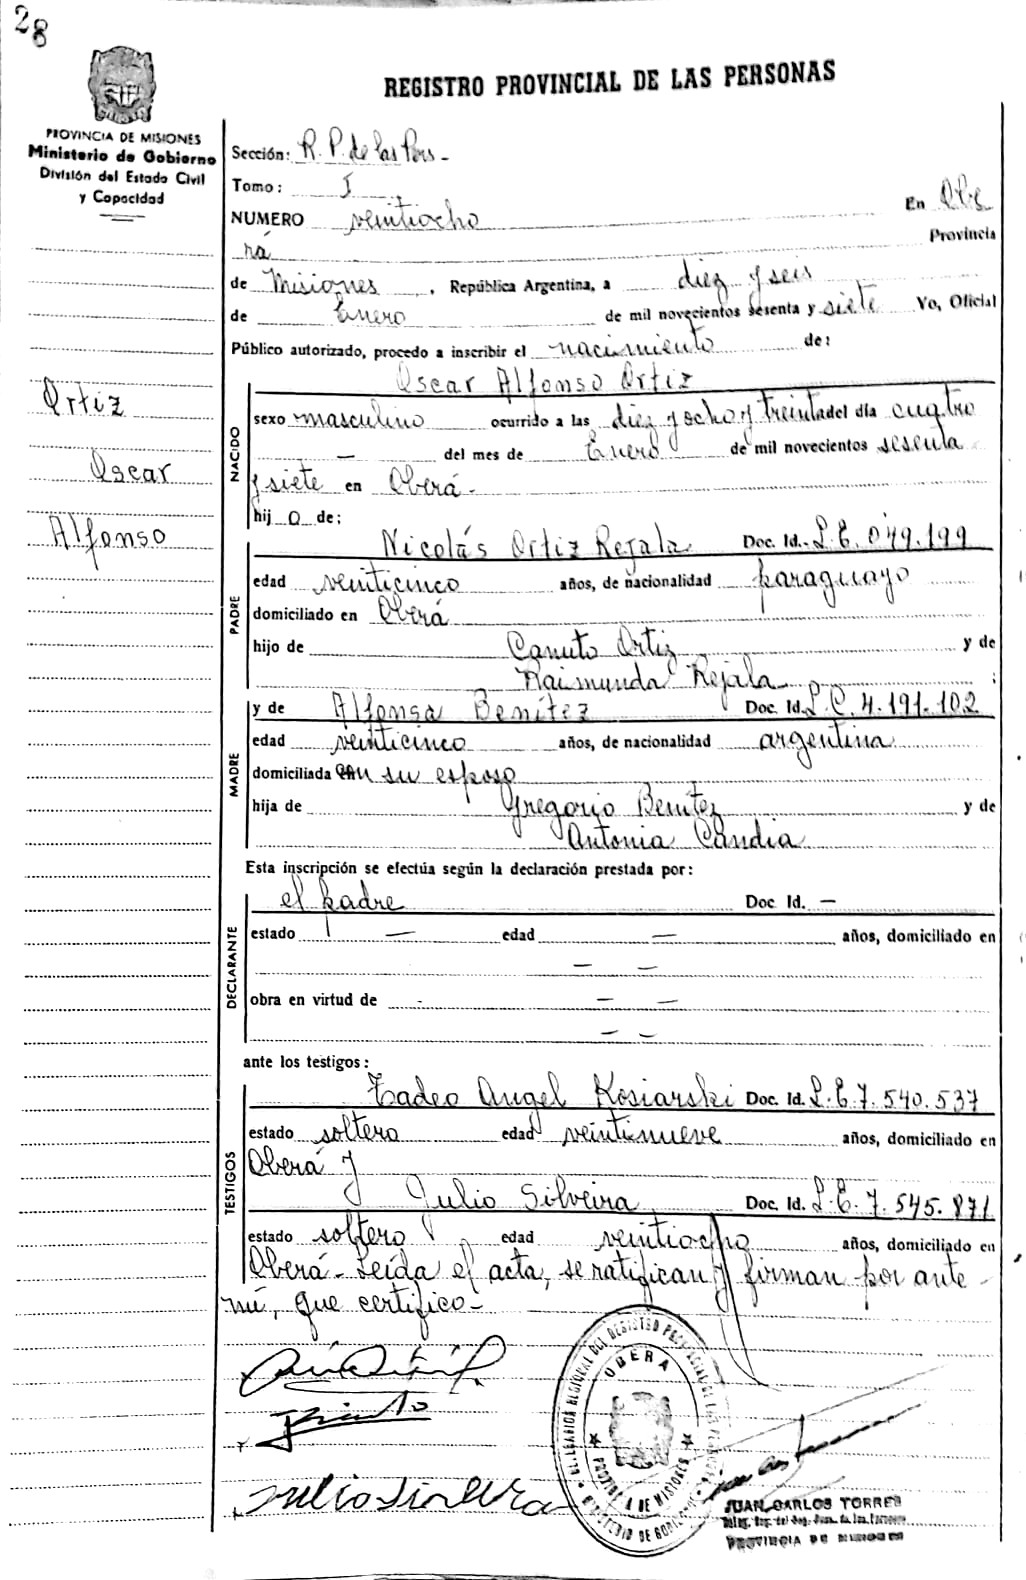 28
REGISTRO PROVINCIAL DE LAS PERSONAS
PROVINCIA DE MISIONES
Ministerio de Gobierno
División del Estado Civil
y Capacidad
Sección: R. P. de las Pers -
Tomo: I
NUMERO veintiocho En Obe
rá Provincia
de Misiones, República Argentina, a diez y seis
de Enero de mil novecientos sesenta y siete Yo, Oficial
Público autorizado, procedo a inscribir el nacimiento de:
Oscar Alfonso Ortiz
Ortiz
Oscar
Alfonso
NACIDO
sexo masculino ocurrido a las diez y ocho y treinta del día cuatro
— del mes de Enero de mil novecientos sesenta
y siete en Oberá -
hij o de:
PADRE
Nicolás Ortiz Rejala Doc. Id.- L.E. 049.199
edad veinticinco años, de nacionalidad paraguayo
domiciliado en Oberá
hijo de Canuto Ortiz y de
Raimunda Rejala ;
MADRE
y de Alfonsa Benítez Doc. Id. L.C. 4.191.102
edad veinticinco años, de nacionalidad argentina
domiciliada con su esposo
hija de Gregorio Benítez y de
Antonia Candia
Esta inscripción se efectúa según la declaración prestada por:
DECLARANTE
el padre Doc Id. —
estado — edad — años, domiciliado en
— —
obra en virtud de — —
— —
ante los testigos:
TESTIGOS
Tadeo Angel Kosiarski Doc. Id. L.E. 7.540.537
estado soltero edad veintinueve años, domiciliado en
Oberá y
Julio Silveira Doc. Id. L.E. 7.545.871
estado soltero edad veintiocho años, domiciliado en
Oberá - Leída el acta, se ratifican y firman por ante
mí, que certifico -
Julio Silveira
OBERA
PROVINCIA DE MISIONES
JUAN CARLOS TORRES
PROVINCIA DE MISIONES